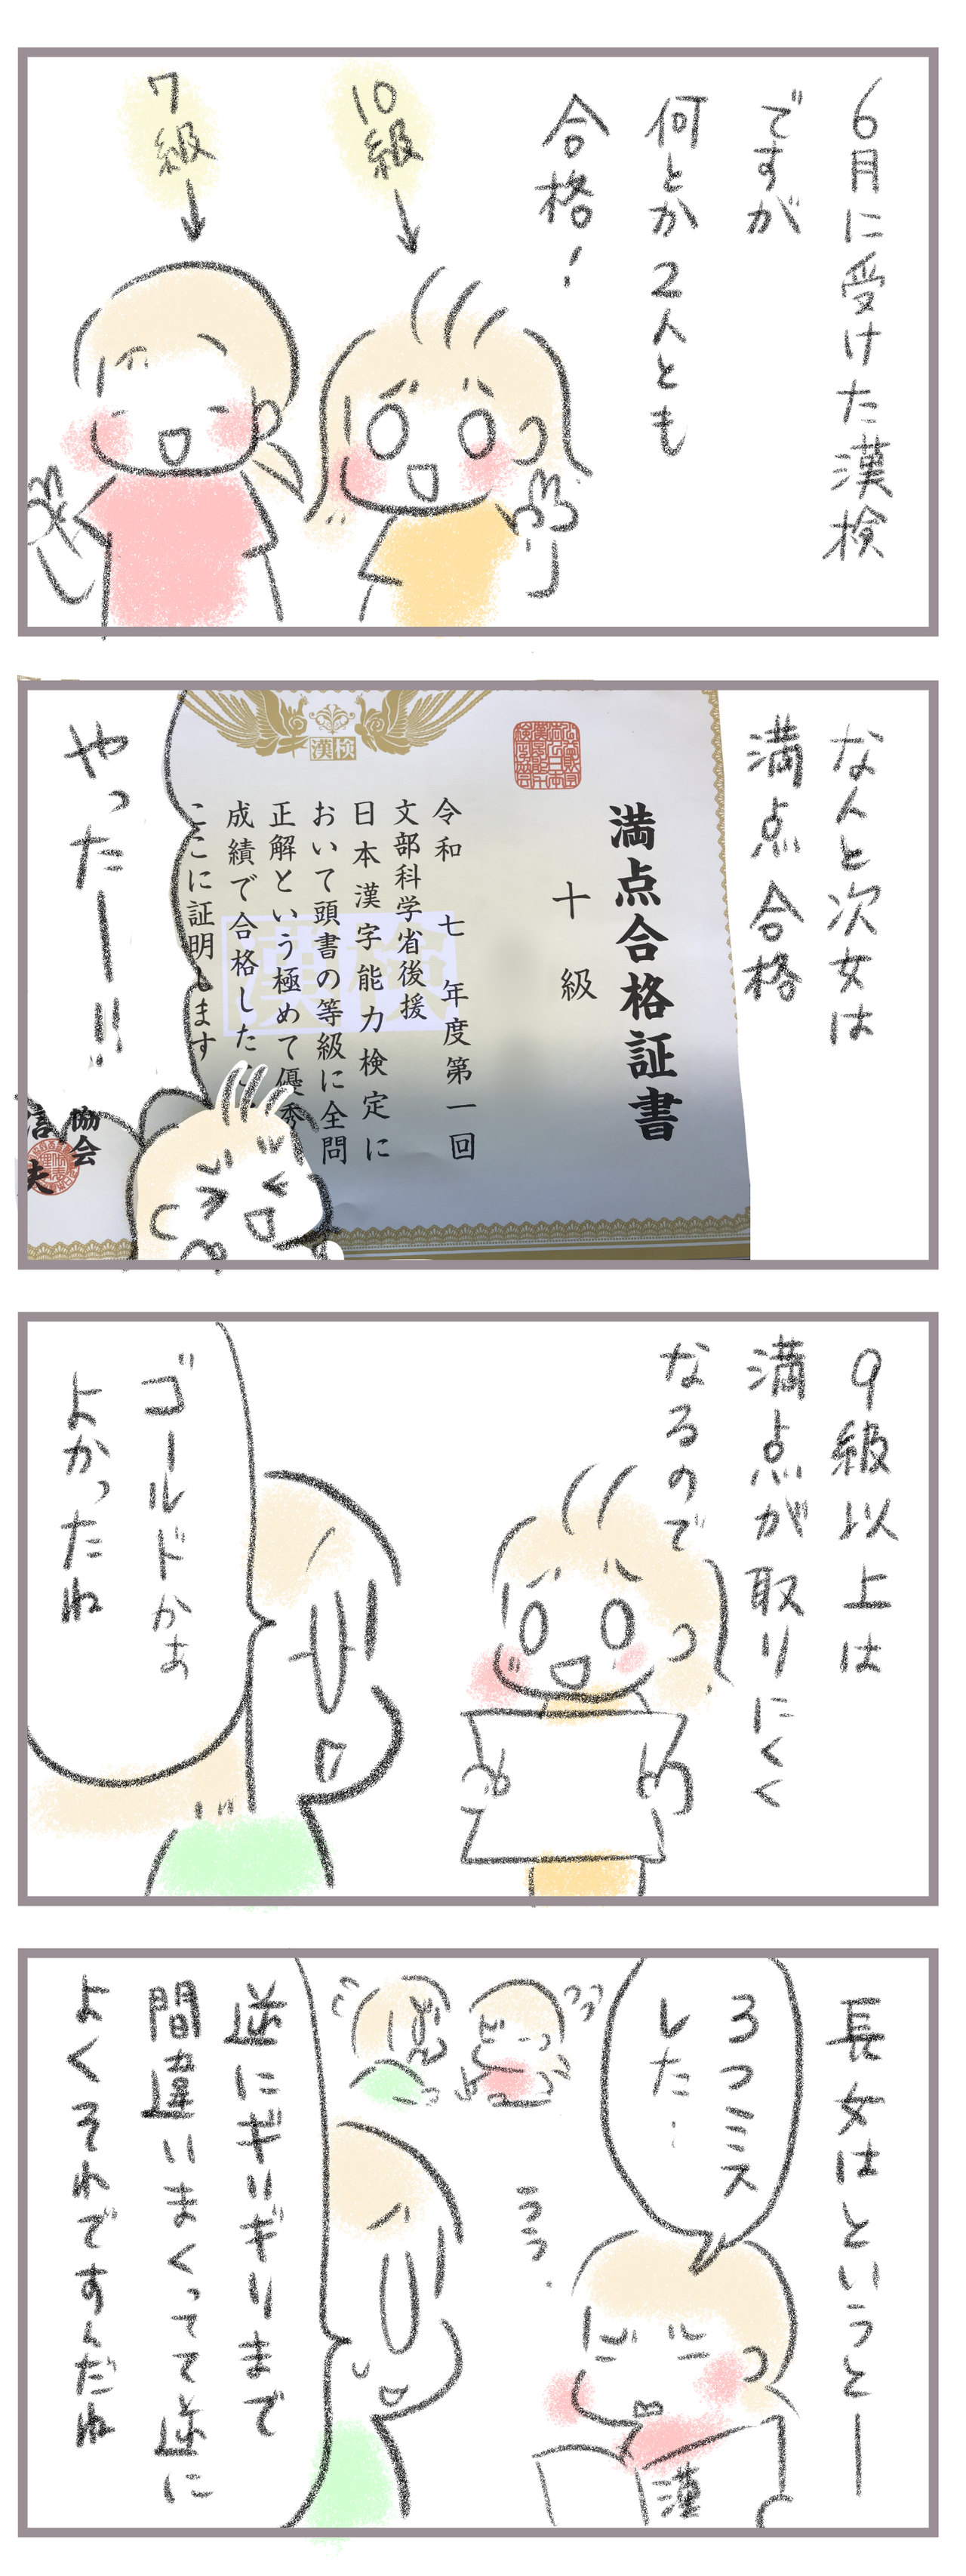 6月に受けた漢検
ですが
何とか2人とも
合格!
10級
7級
なんと次女は
満点合格
満点合格証書
十級
令和 七 年度第一回
文部科学省後援
日本漢字能力検定に
おいて頭書の等級に全問
正解という極めて優秀
成績で合格した
ここに証明します
漢検
漢検
協会
信夫
やったー!!
9級以上は
満点が取りにくく
なるので
ゴールドかぁ
よかったね
長女はというとー
3つミス
した…
うう
漢
逆にギリギリまで
間違いまくってて逆に
よくそれですんだね